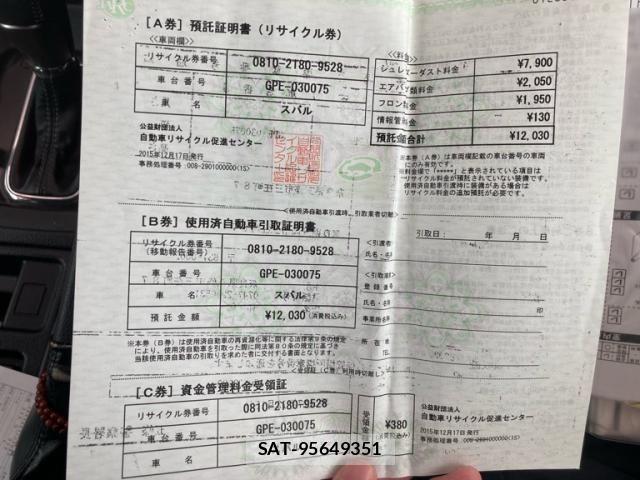 [A券] 預託証明書(リサイクル券)
<<車両欄>>
リサイクル券番号 0810-2180-9528
車台番号 GPE-030075
車 名 スバル
<<料金>>
シュレッダーダスト料金 ¥7,900
エアバッグ類料金 ¥2,050
フロン類料金 ¥1,950
情報管理料金 ¥130
預託金合計 ¥12,030
公益財団法人
自動車リサイクル促進センター
2015年12月17日発行
事務処理番号:008-2901000000(1S)
※本券(A券)は車両欄記載の車台番号の車両
にのみ有効です。
※料金欄で「*****」と表示されている項目は
リサイクル料金が預託されていない装備です。
使用済自動車引渡時に装備がある場合は
リサイクル料金の追加預託が必要です。
<使用済自動車引渡時、引取業者切離>
[B券] 使用済自動車引取証明書
引取日: 年 月 日
リサイクル券番号
(移動報告番号) 0810-2180-9528
車台番号 GPE-030075
車 名 スバル
預託金額 ¥12,030(消費税込み)
<引渡者>
氏名・名
<引取業者>
登録番号
氏名・名称
印
事業所名
所在地
TEL
※本券(B券)は使用済自動車の再資源化等に関する法律第9条の規定
により、使用済自動車を引取った際に同法第80条の規定に基づき
当該使用済自動車の引取りを求めた者に交付する書面となります。
[C券] 資金管理料金受領証
リサイクル券番号 0810-2180-9528
車台番号 GPE-030075
車 名
受領金 ¥380
(消費税込み)
公益財団法人
自動車リサイクル促進センター
2015年12月17日発行
事務処理番号:008-2901000000(1S)
SAT-95649351